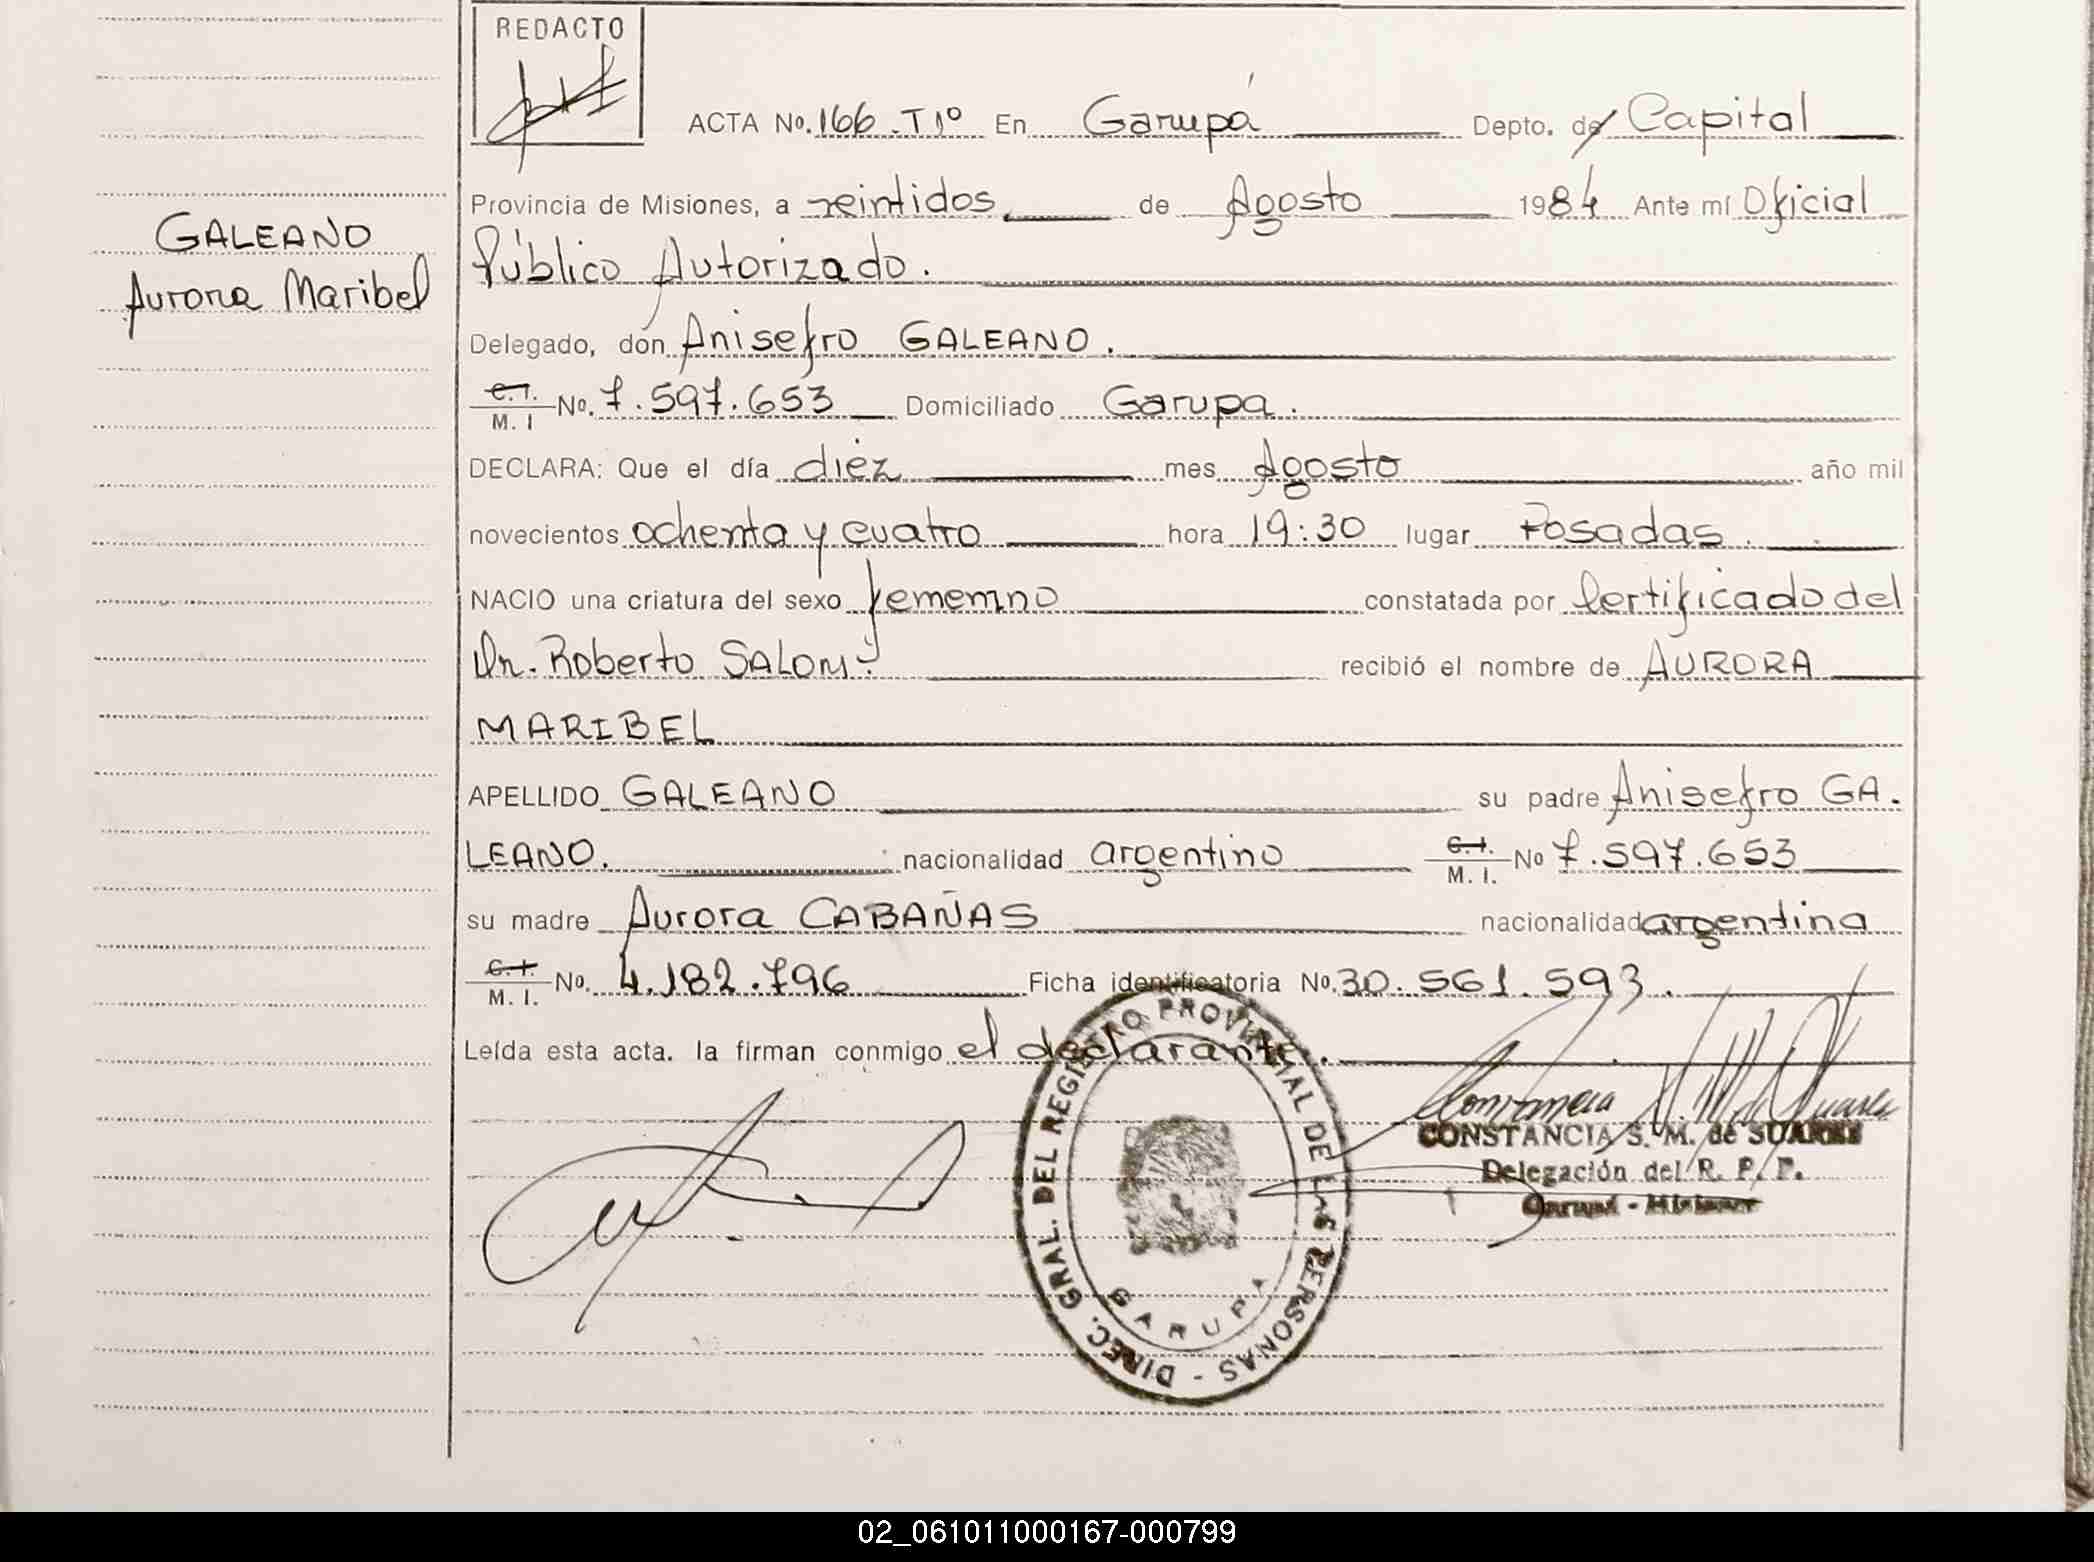 REDACTO
ACTA No. 166. T1º En Garupá Depto. de Capital
Provincia de Misiones, a veintidos de Agosto 1984 Ante mí Oficial
GALEANO
Público Autorizado.
Aurora Maribel
Delegado, don Anisefro GALEANO.
C.I. M. I No. 7.597.653 Domiciliado Garupa.
DECLARA: Que el día diez mes Agosto año mil
novecientos ochenta y cuatro hora 19:30 lugar Posadas.
NACIO una criatura del sexo femenino constatada por Certificado del
Dr. Roberto SALOM. recibió el nombre de AURORA
MARIBEL
APELLIDO GALEANO su padre Anisefro GA.
LEANO. nacionalidad argentino C.I. M. I. No 7.597.653
su madre Aurora CABAÑAS nacionalidad argentina
C.I. M. I. No. 4.182.796 Ficha identificatoria No. 30.561.593.
Leída esta acta. la firman conmigo el declarante.
DIREC. GRAL. DEL REGISTRO PROVINCIAL DE LAS PERSONAS -
GARUPA
CONSTANCIA S. M. de SUAREZ
Delegación del R. P. P.
Garupá - Misiones
02_061011000167-000799